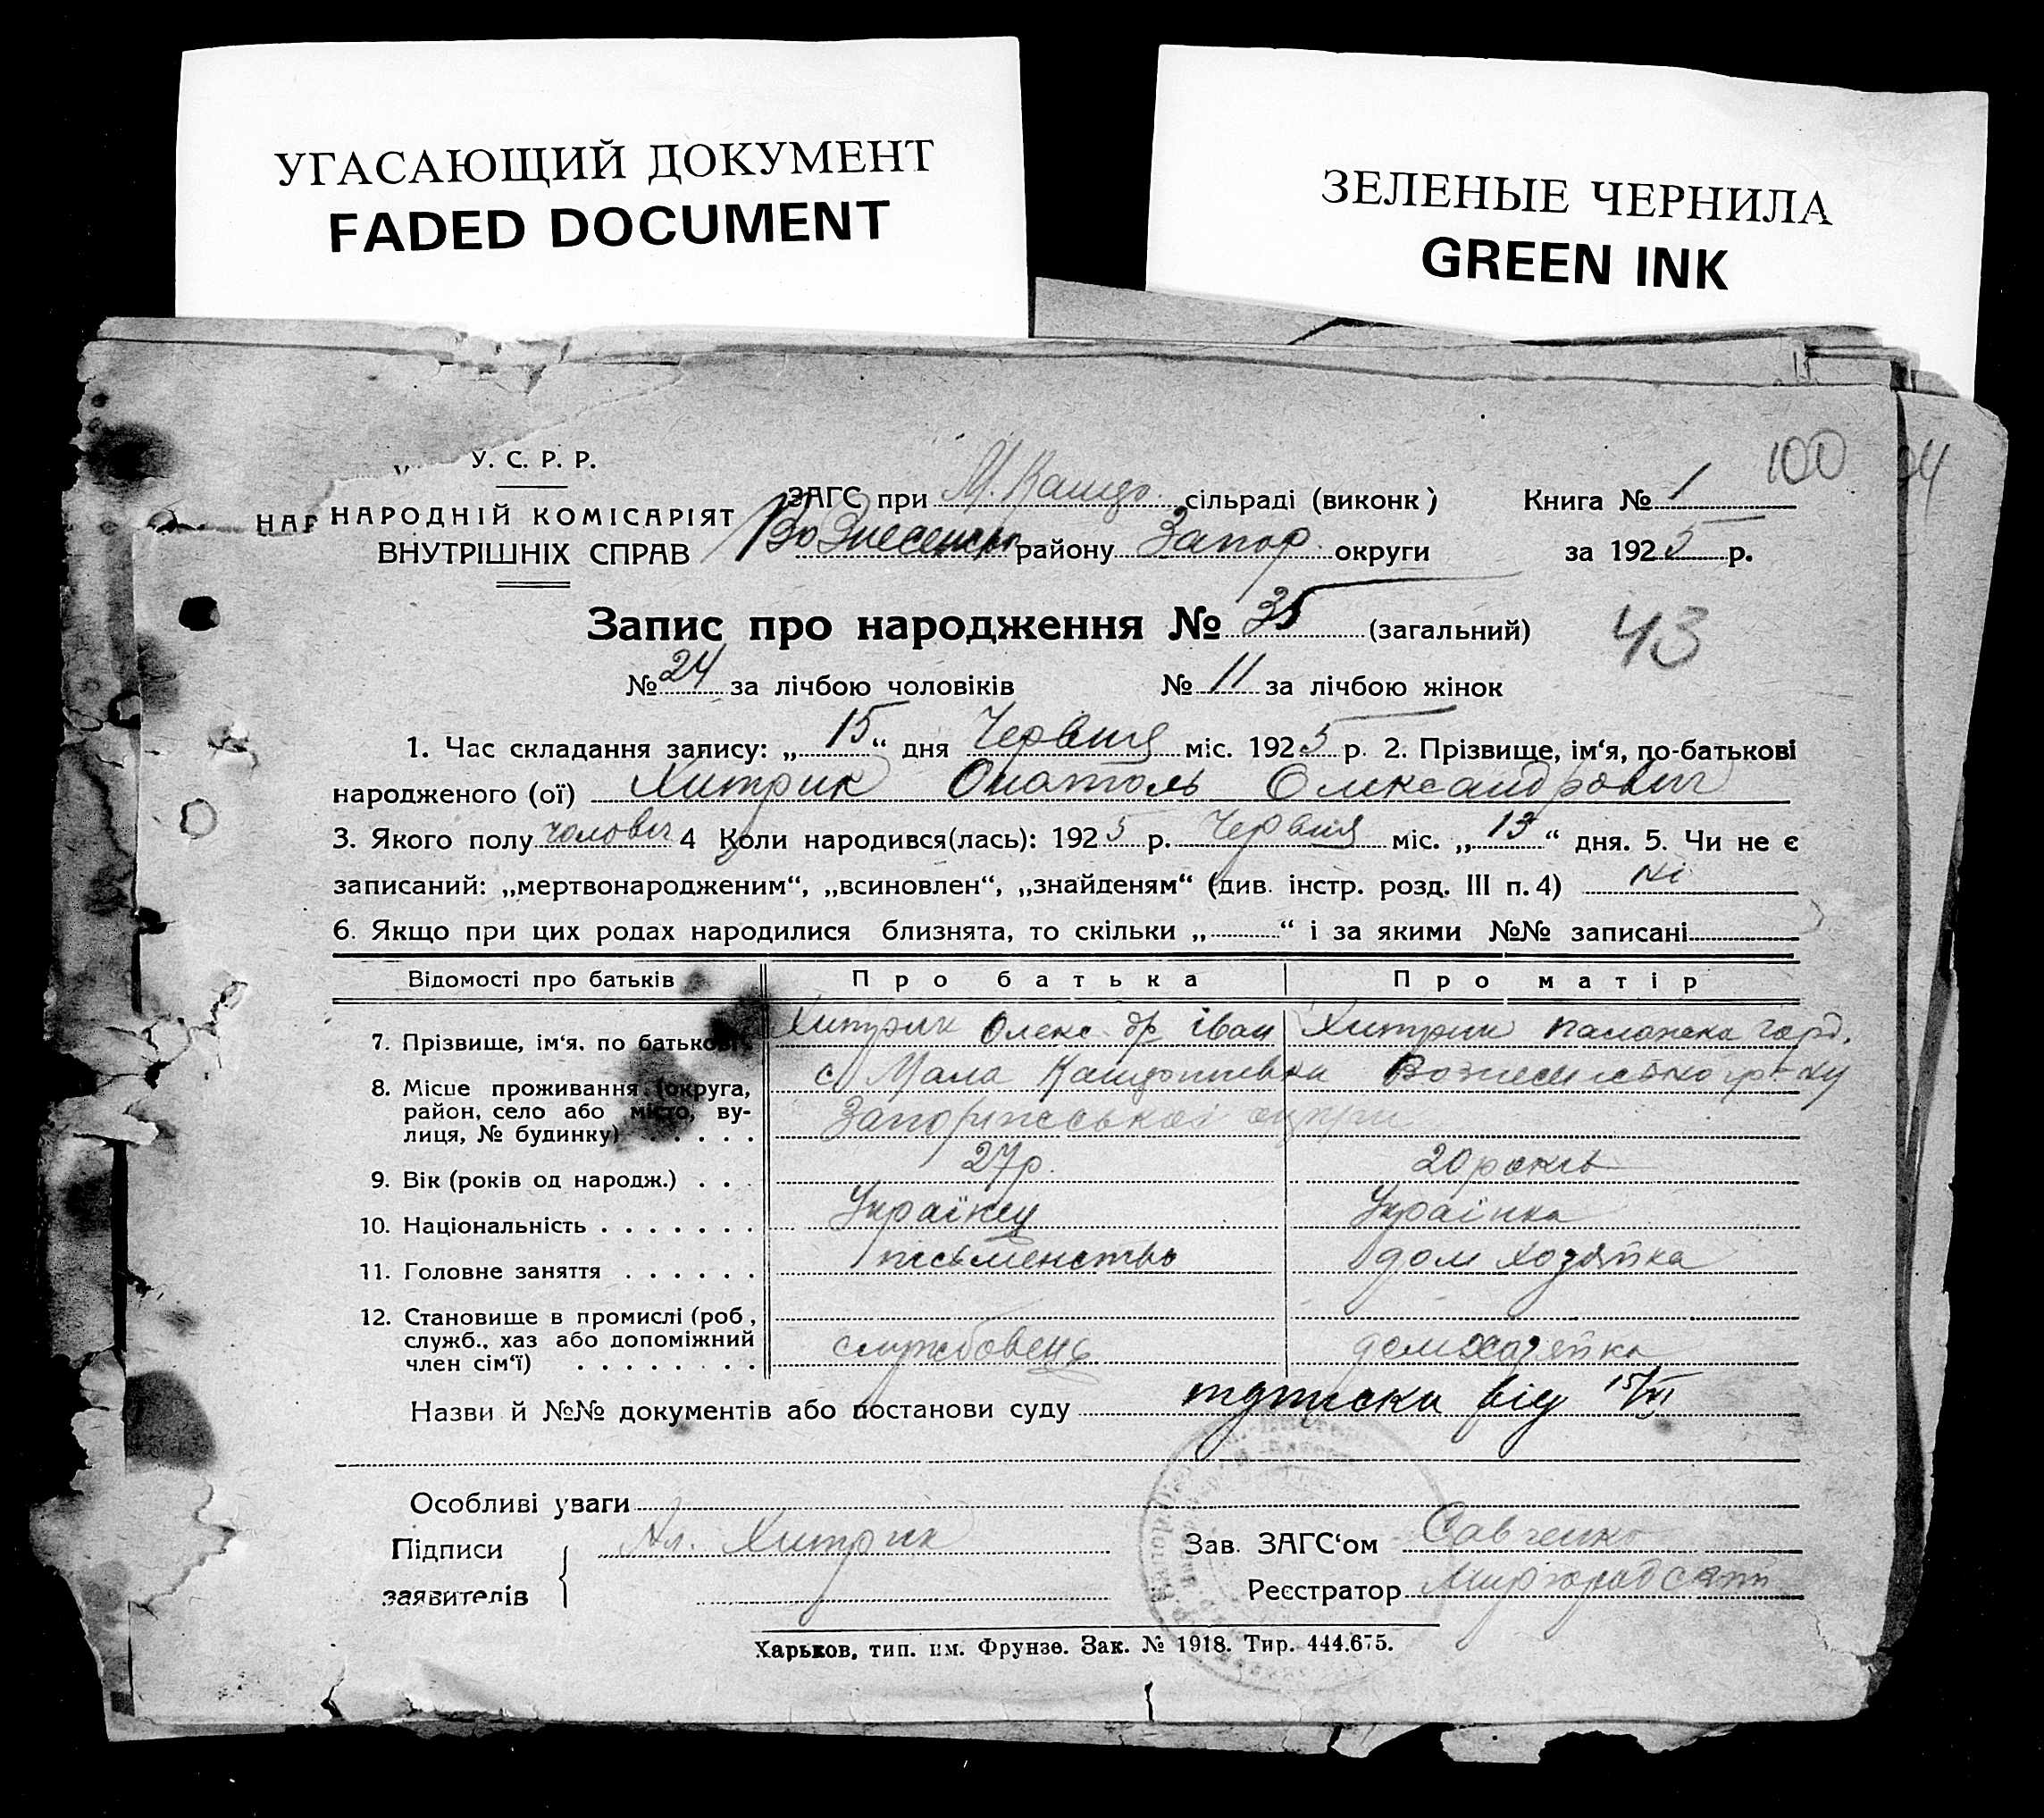 УГАСАЮЩИЙ ДОКУМЕНТ
FADED DOCUMENT
ЗЕЛЕНЫЕ ЧЕРНИЛА
GREEN INK
100
У. С. Р. Р.
НАРОДНІЙ КОМІСАРІЯТ
ВНУТРІШНІХ СПРАВ
ЗАГС при М. Кашдо. сільраді (виконк) Книга № 1
Вознесенськ району Запор. округи за 1925 р.
Запис про народження № 35 (загальний)
43
№ 24 за лічбою чоловіків № 11 за лічбою жінок
1. Час складання запису: „15“ дня Червня міс. 1925 р. 2. Прізвище, ім‘я, по-батькові
народженого (ої) Хитрик Онатоль Олександрович
3. Якого полу чолович 4 Коли народився(лась): 1925 р. Червня міс. „13“ дня. 5. Чи не є
записаний: „мертвонародженим“, „всиновлен“, „знайденям“ (див. інстр. розд. III п. 4) Ні
6. Якщо при цих родах народилися близнята, то скільки „ “ і за якими №№ записані
Відомості про батьків Про батька Про матір
7. Прізвище, ім‘я. по батькові Хитрик Олекс-др Іван Хитрик
8. Місце проживання (округа, с Мала Вознесенського р-ну
район, село або місто, ву- Запоріжської округи
лиця, № будинку)
9. Вік (років од народж.) 27 р. 20 років
10. Національність Українец Українка
11. Головне заняття письменство дом хозяйка
12. Становище в промислі (роб,
служб., хаз або допоміжний службовець домхазяйка
член сім‘ї)
Назви й №№ документів або постанови суду підписки від 15/VI
Особливі уваги
Підписи Ал. Хитрик Зав. ЗАГС‘ом Савченко
заявителів Реєстратор
Харьков, тип. им. Фрунзе. Зак. № 1918. Тир. 444.675.